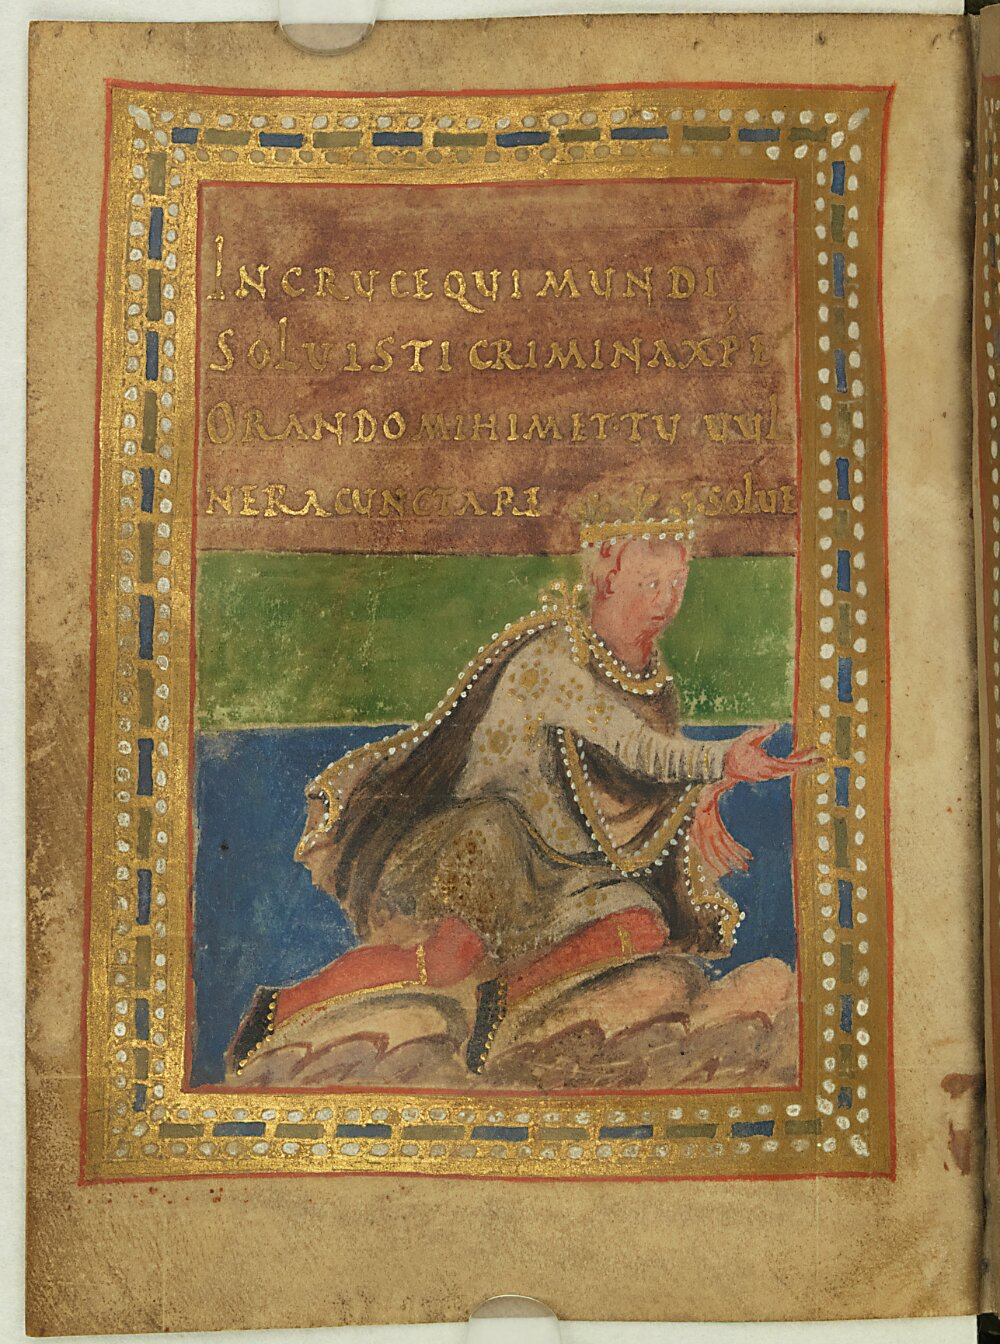 INCRUCEQUI MUNDI
SOLUISTI CRIMINAXPE
ORANDO MIHIMET·TU UUL
NERA CUNCTA PI SOLUE